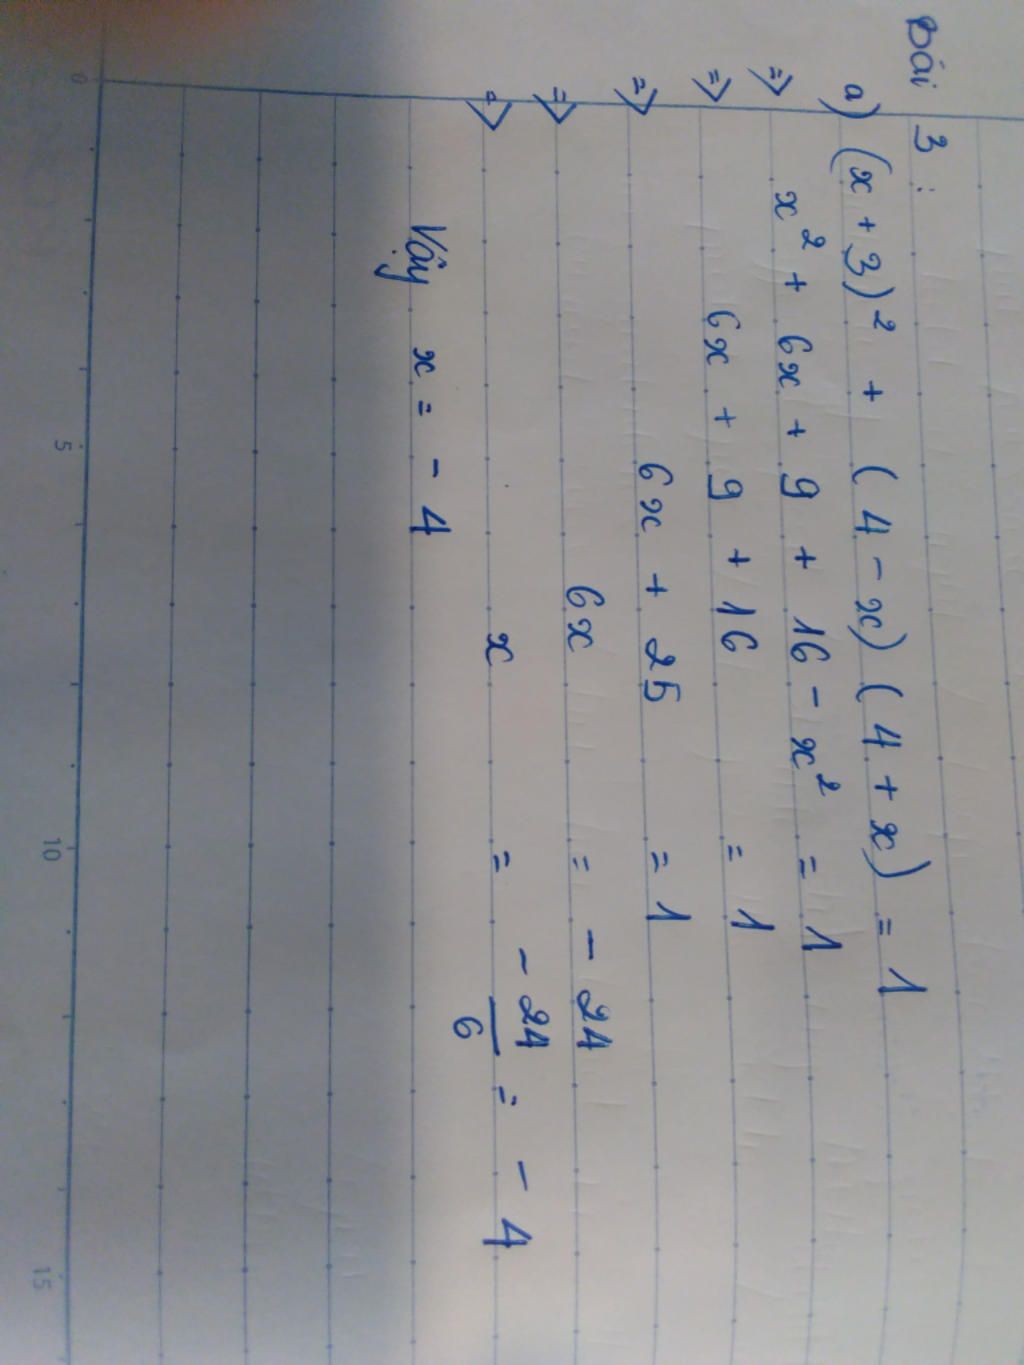 Bài 3 :
a) (x + 3)² + (4 - x) (4 + x) = 1
=> x² + 6x + 9 + 16 - x² = 1
=> 6x + 9 + 16 = 1
=> 6x + 25 = 1
=> 6x = - 24
=> x = - 24/6 = - 4
Vậy x = - 4
0 5 10 15